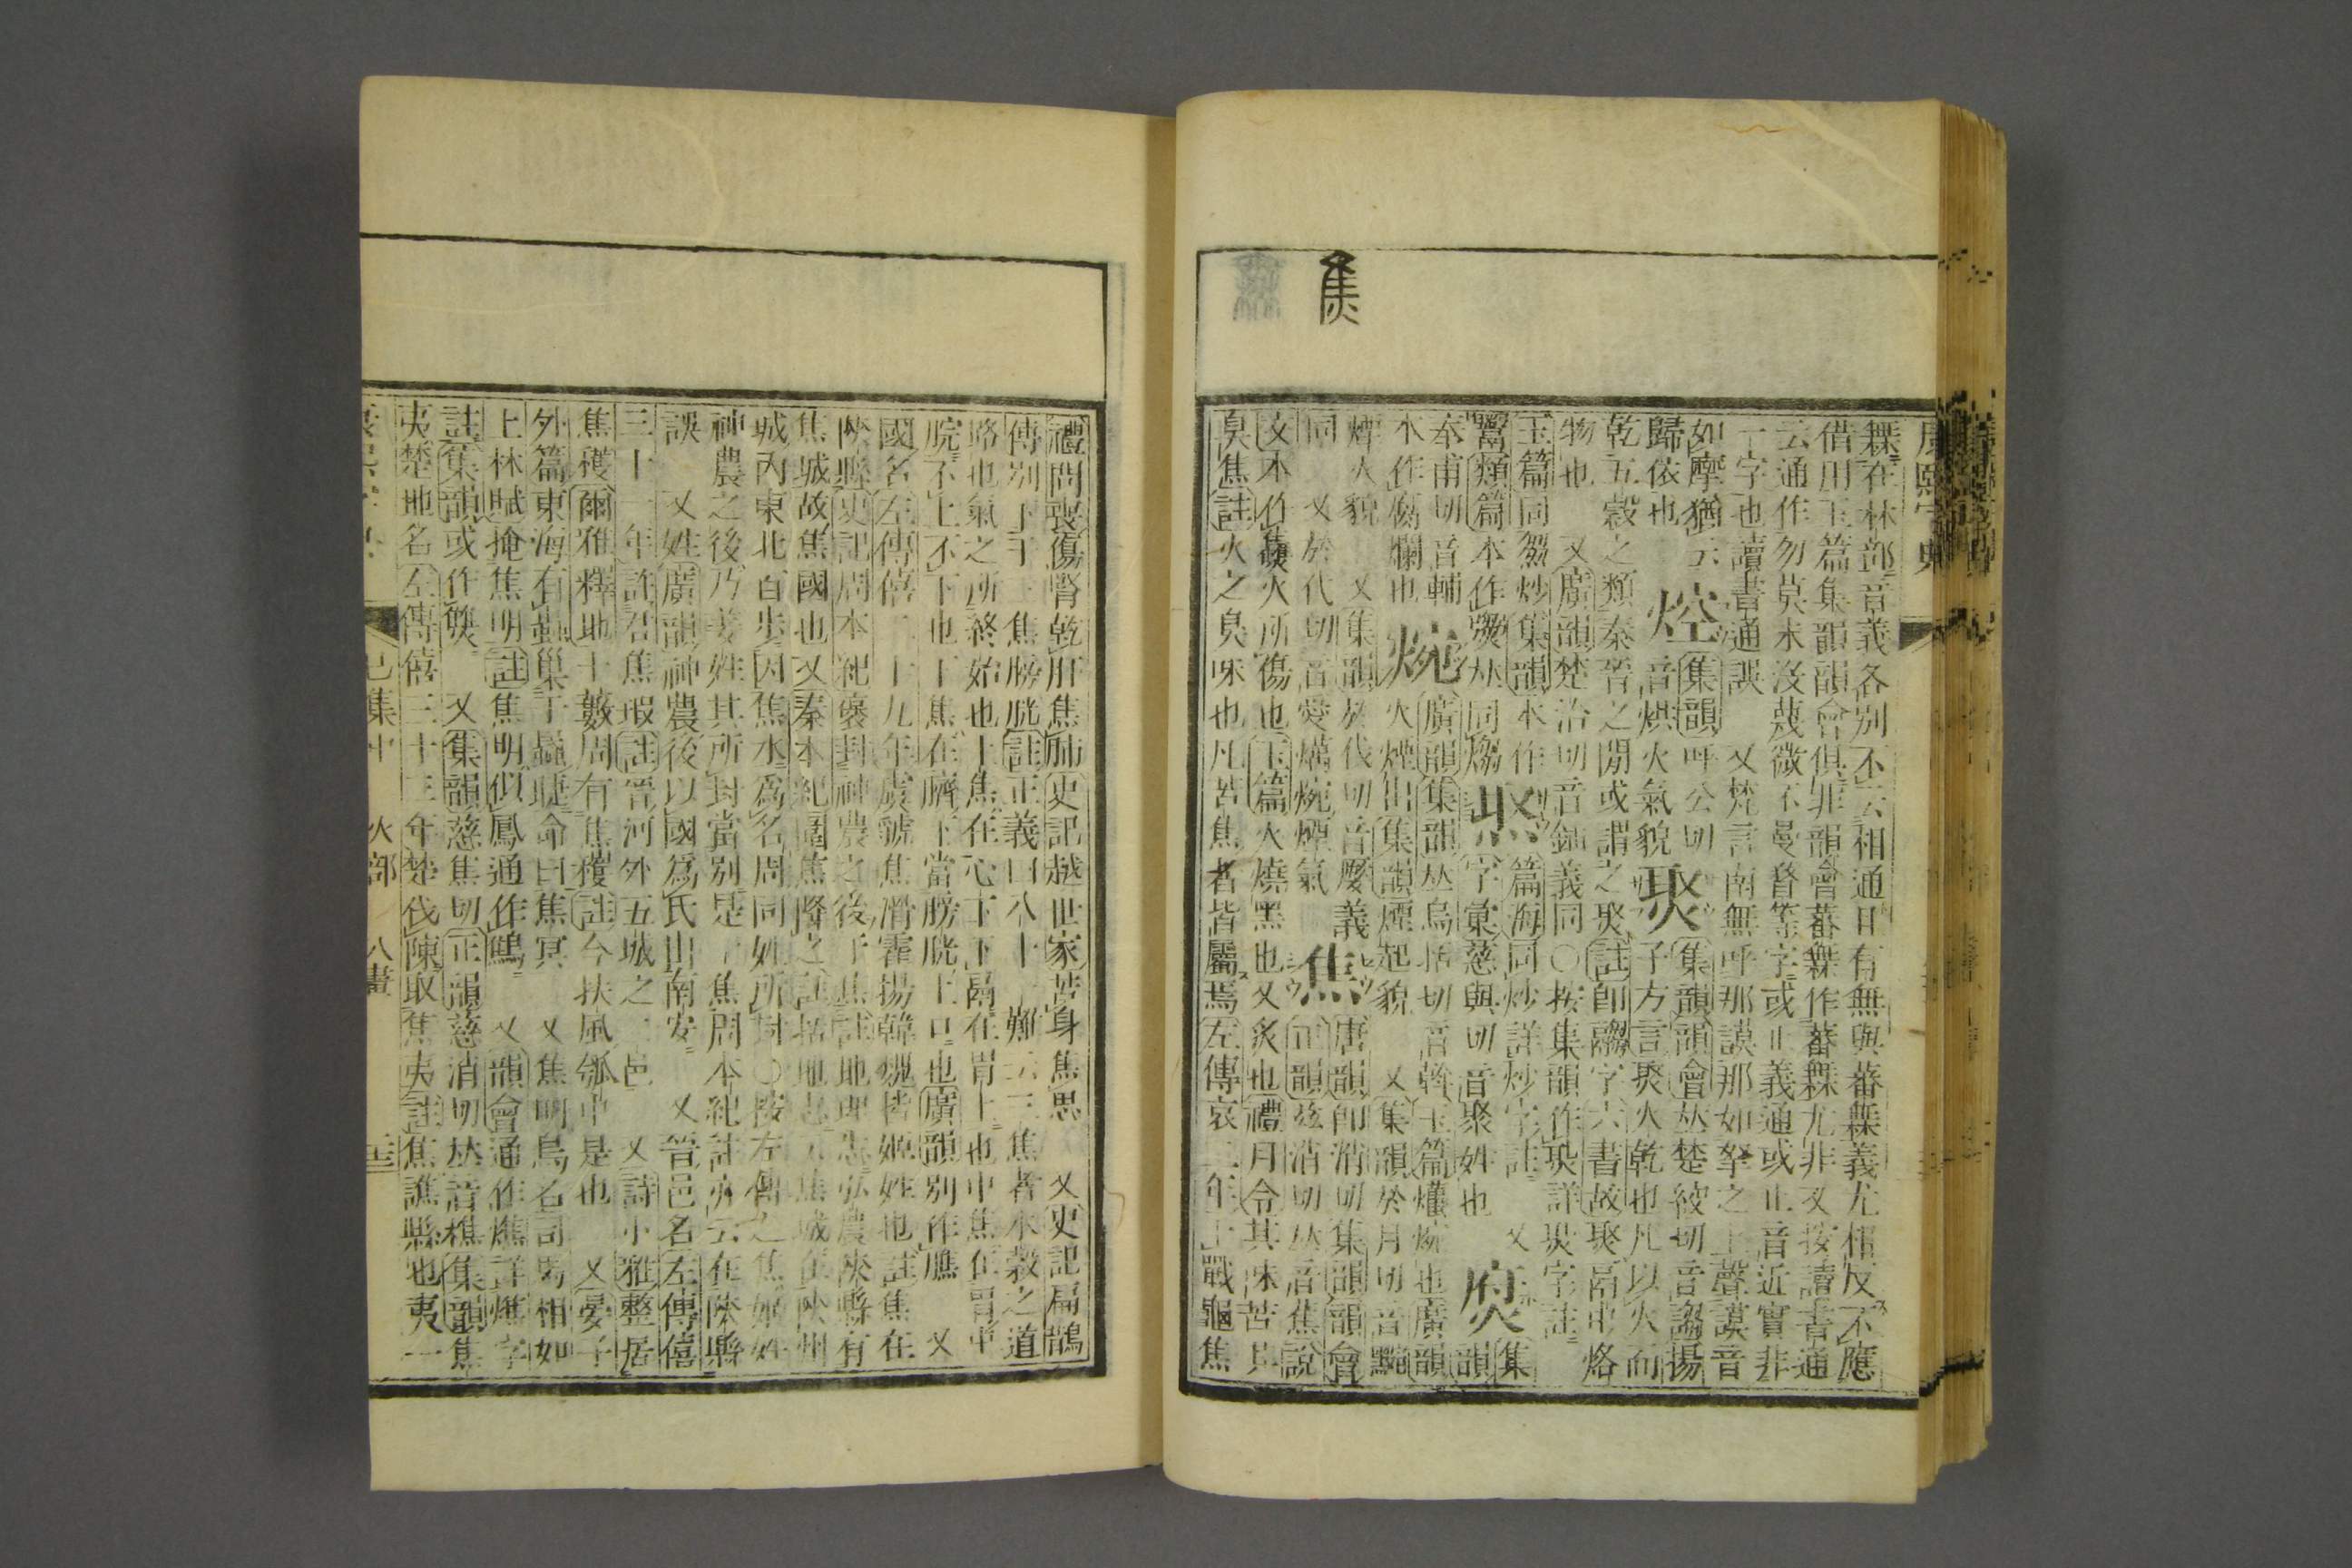 焦
康熙字典
橆在林部音義各別不云相通日有無與蕃橆義尤相反不應
借用玉篇集韻韻會俱非韻會蕃橆作蕃橆尤非又按讀書通
云通作勿莫末沒蔑微不曼瞀等字或止義通或止音近實非
一字也讀書通誤 又梵言南無呼那謨那如拏之上聲謨音
如摩猶云
歸依也 焢 集韻呼公切
音烘火氣貌 焣 集韻韻會𠀤楚絞切音謅揚
子方言焣火乾也凡以火而
乾五穀之類秦晉之閒或謂之焣註卽䰞字六書故焣鬲中烙
物也 又廣韻楚治切音 義同○按集韻作 詳 字註
玉篇同 炒集韻本作
䰞類篇本作 𠀤同 焣 篇海同炒詳炒字註 又
字彙慈與切音聚姓也 焤 集
韻
奉甫切音輔
本作腐爛也 焥 廣韻集韻𠀤烏括切音斡玉篇爟焥也廣韻
火煙出集韻煙起貌 又集韻於月切音黦
煙火貌 又集韻於代切音
同 又於代切音愛 焥煙氣 焦 唐韻卽消切集韻韻會
正韻玆消切𠀤音焦說
文本作 火所傷也玉篇火燒黑也又炙也禮月令其味苦其
臭焦註火之臭味也凡苦焦者皆屬焉左傳哀二年卜戰龜焦
禮問喪傷腎乾肝焦肺史記越世家苦身焦思 又史記扁鵲
傳別下于三焦膀胱註正義曰八十一難云三焦者水穀之道
路也氣之所終始也上焦在心下下鬲在胃上也中焦在胃中
脘不上不下也下焦在臍下當膀胱上口也廣韻別作膲 又
國名左傳僖二十九年虞虢焦滑霍揚韓魏皆姬姓也註焦在
陝縣史記周本紀褒封神農之後于焦註地理志弘農陝縣有
焦城故焦國也又秦本紀圍焦降之註括地志云焦城在陝州
城內東北百步因焦水爲名周同姓所封○按左傳之焦姬姓
神農之後乃姜姓其所封當別是一焦周本紀註亦云在陝縣
誤 又姓廣韻神農後以國爲氏出南安 又晉邑名左傳僖
三十一年許君焦瑕註晉河外五城之二邑 又詩小雅整居
焦穫爾雅釋地十藪周有焦穫註今扶風瓠中是也 又晏子
外篇東海有蟲巢于蟁睫命曰焦冥 又焦明鳥名司馬相如
上林賦掩焦明註焦明似鳳通作鷦 又韻會通作燋詳燋字
註集韻或作𤍽 又集韻慈焦切正韻慈消切𠀤音樵集韻焦
夷楚地名左傳僖二十三年楚伐陳取焦夷註焦譙縣也夷一
巳集中 火部 八畫